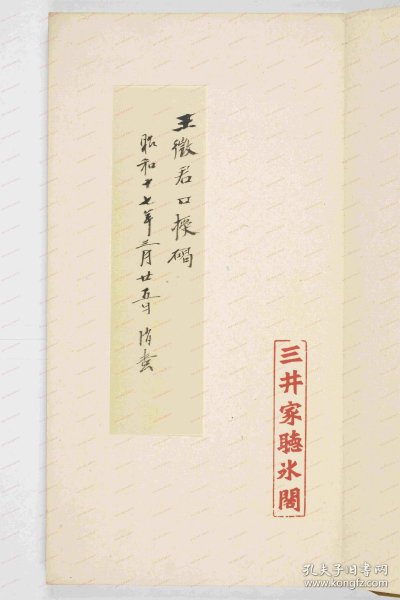 王徵君口授碣
昭和十七年三月廿五日 消毒
三井家聴氷閣
孔夫子旧书网
www.kongfz.com